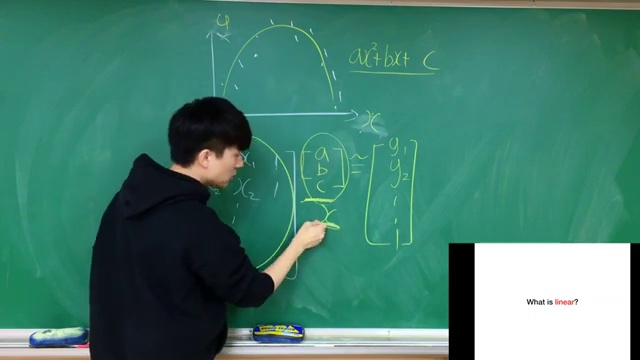 y
ax²+bx+ c
x
x₁ 1 [a b c] ≅ [y₁
x₂ 1 y₂
x
What is linear?